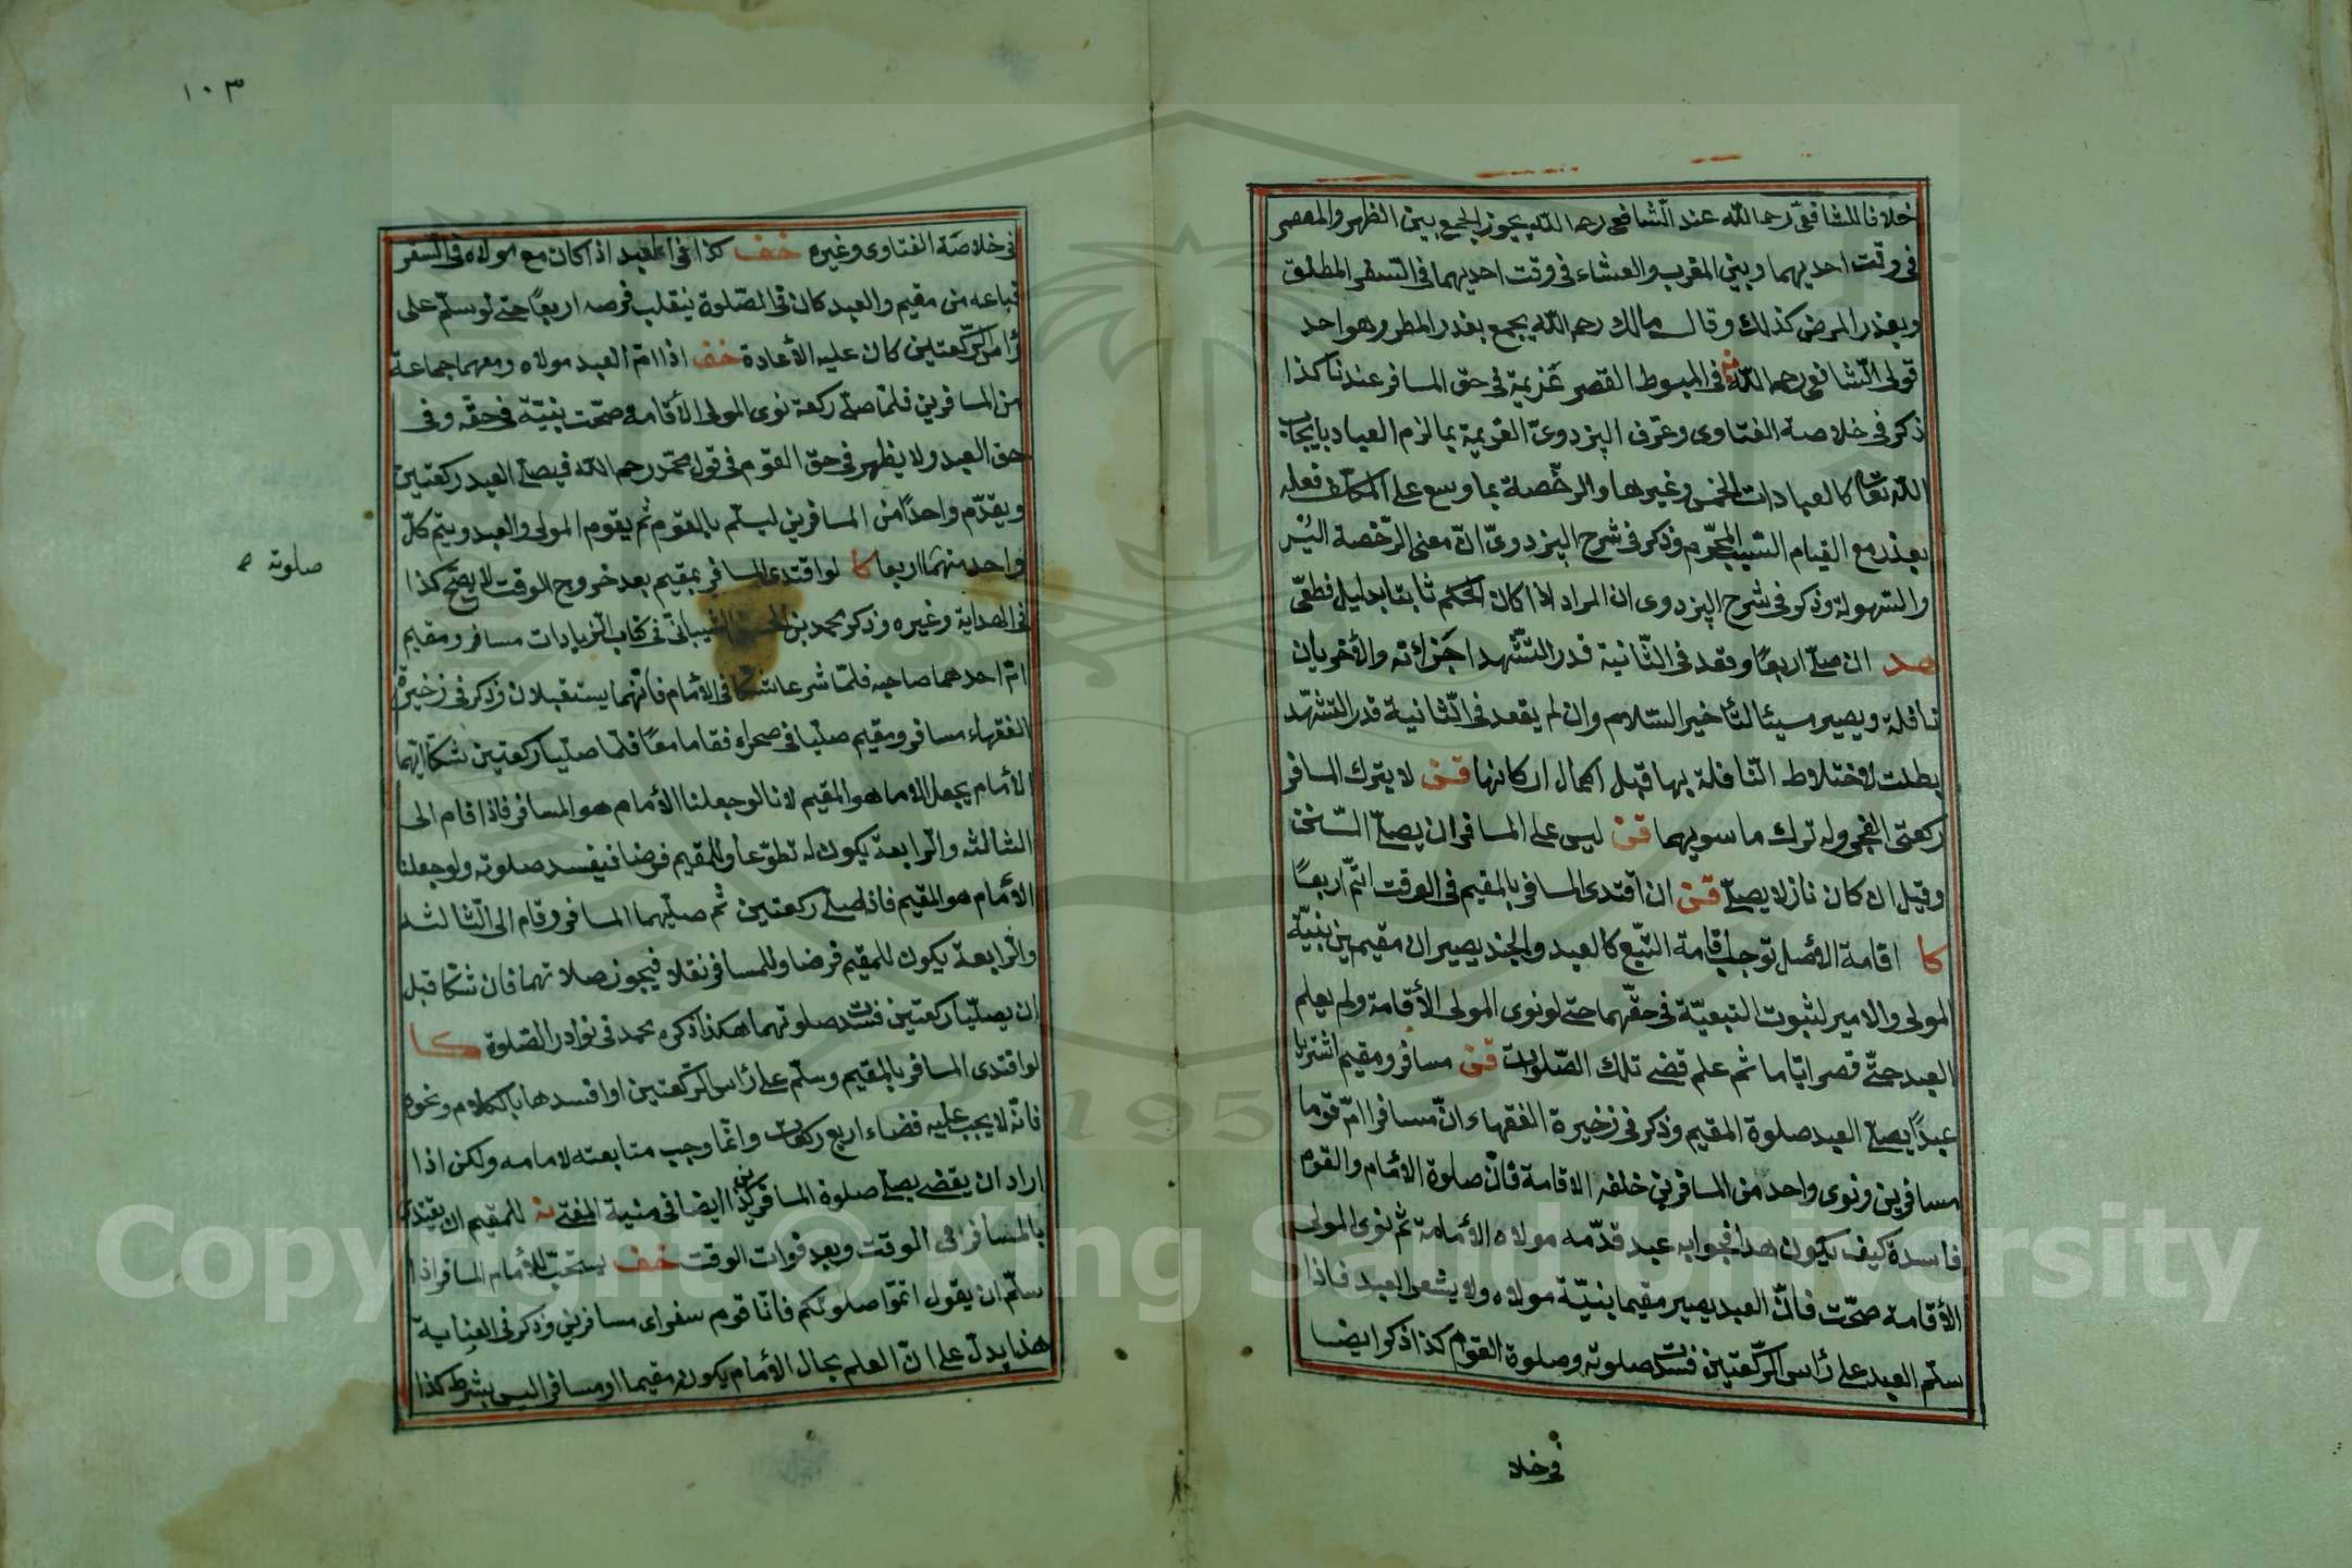 خلافا للشافعي رحمه الله عند الشافعي رحمه الله يجوز الجمع بين الظهر والعصر
في وقت احديهما وبين المغرب والعشاء في وقت احديهما في السفر المطلق
وبعذر المرض كذلك وقال مالك رحمه الله يجمع بعذر المطر وهو احد
قولي الشافعي رحمه الله في المبسوط القصر عزيمة في حق المسافر عندنا كذا
ذكر في خلاصة الفتاوى وعرف البزدوي العزيمة بما لزم العباد بايجاب
الله تعالى كالعبادات الخمس وغيرها والرخصة بما وسع على المكلف فعله
بعذر مع القيام السبب المحرم وذكر في شرح البزدوي ان معنى الرخصة اليسر
والسهولة وذكر في شرح البزدوي ان المراد اذا كان الحكم ثابتا بدليل قطعي
هد ان صلى اربعا وقعد في الثانية قدر التشهد اجزائته والأخريان
نافلة ويصير مسيئا لتأخير السلام وان لم يقعد في الثانية قدر التشهد
بطلت لاختلاط النافلة بها قبل اكمال اركانها قن لا يترك المسافر
ركعتي الفجر وله ترك ما سويهما قن ليس على المسافر ان يصلي السنن
وقيل ان كان نازلا يصلي قن ان اقتدى المسافر بالمقيم في الوقت اتم اربعا
كا اقامة الأصل توجب اقامة التبع كالعبد والجند يصيران مقيمين بنية
المولى والامير لثبوت التبعية في حقهما حتى لو نوى المولى الأقامة ولم يعلم
العبد حتى قصر اياما ثم علم قضى تلك الصلوات قن مسافر ومقيم اشتريا
عبدا يصلي العبد صلوة المقيم وذكر في زخيرة الفقهاء ان مسافرا ام قوما
مسافرين ونوى واحد من المسافرين خلفه الاقامة فان صلوة الأمام والقوم
فاسدة كيف يكون هذا فجوابه عبد قدمه مولاه الأمامة ثم نوى المولى
الأقامة صحت فان العبد يصير مقيما بنية مولاه ولا يشعر العبد فاذا
سلم العبد على رأس الركعتين فسدت صلوته وصلوة القوم كذا ذكر ايضا
في خلا
١٠٣
في خلاصة الفتاوى وغيره خف كذا في العبد اذا كان مع مولاه في السفر
فباعه من مقيم والعبد كان في الصلوة ينقلب فرضه اربعا حتى لو سلم على
رأس الركعتين كان عليه الأعادة خف اذا ام العبد مولاه ومعهما جماعة
من المسافرين فلما صلى ركعة نوى المولى الأقامة وصحت بنيته في حقه وفي
حق العبد ولا يظهر في حق القوم في قول محمد رحمه الله فيصلي العبد ركعتين
ويقدم واحدا من المسافرين ليسلم بالقوم ثم يقوم المولى والعبد ويتم كل
واحد منهما اربعا كا لو اقتدى المسافر بمقيم بعد خروج الوقت لا يصح كذا
في الهداية وغيره وذكر محمد بن الحسن الشيباني في كتاب الزيادات مسافر ومقيم
ام احدهما صاحبه فلما شرعا شكا في الأمام فانهما يستقبلان وذكر في زخيرة
الفقهاء مسافر ومقيم صليا في صحراء فقاما معا فلما صليا ركعتين شكا ايهما
الأمام يجعل الامام هو المقيم لانا لو جعلنا الأمام هو المسافر فاذا قام الى
الثالثة والرابعة يكون له تطوعا وللمقيم فرضا فيفسد صلوته ولو جعلنا
الأمام هو المقيم فاذا صلى ركعتين ثم صليهما المسافر وقام الى الثالثة
والرابعة يكون للمقيم فرضا وللمسافر نفلا فيجوز صلاتهما فان شكا قبل
ان يصليا ركعتين فسدت صلوتهما هكذا ذكره محمد في نوادر الصلوة كا
لو اقتدى المسافر بالمقيم وسلم على رأس الركعتين او افسدها بالكلام ونحوه
فانه لا يجب عليه قضاء اربع ركعات وانما وجب متابعته لامامه ولكن اذا
اراد ان يقضي يصلي صلوة المسافرين كذا ايضا في منية المفتي للمقيم ان يقتدي
بالمسافر في الوقت وبعد فوات الوقت خف يستحب للأمام المسافر اذا
سلم ان يقول اتموا صلوتكم فانا قوم سفر اى مسافرين وذكر في العناية
هذا يدل على ان العلم بحال الأمام يكونه مقيما او مسافرا ليس بشرط كذا
صلوته
Copyright © King Saud University
195